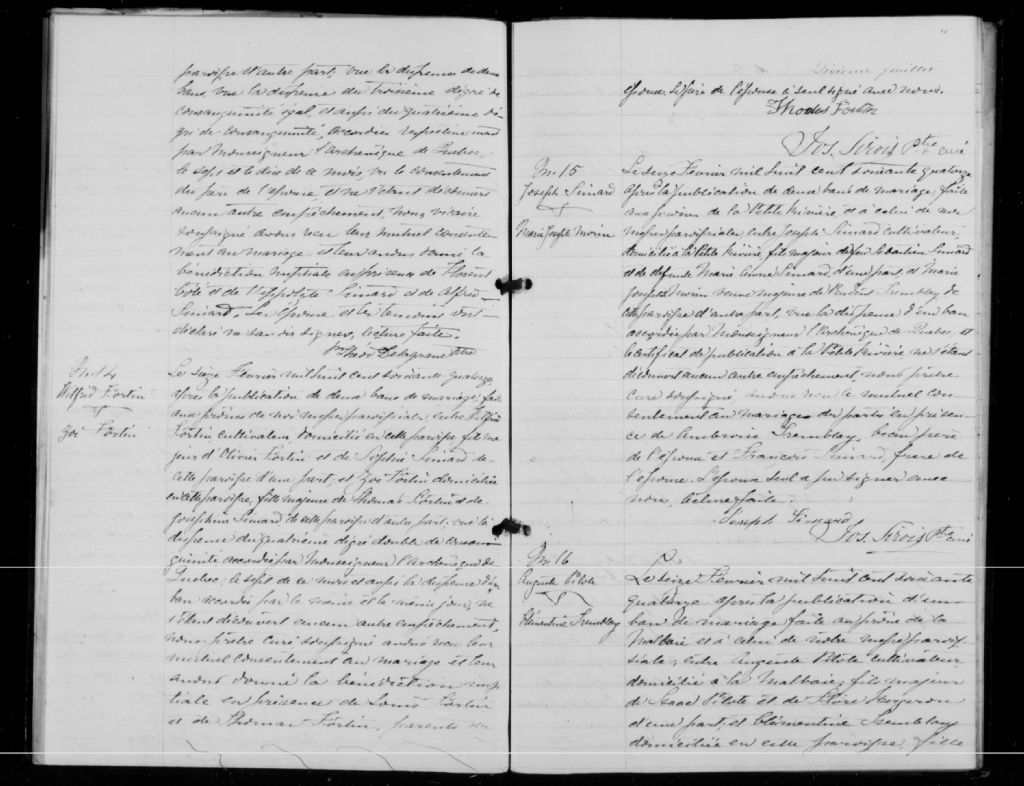 paroisse d'autre part, vue la dispense de deux
bans, vue la dispense du troisième degré de
consanguinité égal et aussi du quatrième de-
gré de consanguinité, accordées respectivement
par Monseigneur l'Archevêque de Québec,
le sept et le dix de ce mois, vu le consentement
du père de l'épouse, et ne s'étant découvert
aucun autre empêchement, nous vicaire
soussigné avons reçu leur mutuel consente-
ment au mariage et leur avons donné la
bénédiction nuptiale en présence de Florent
Coté et de Hyppolyte Simard et de Alfred
Simard. Les époux et les témoins ont
déclaré ne savoir signer, lecture faite.
Ptre
M. 14
Wilfrid Fortin
Zoé Fortin
Le seize Février mil huit cent soixante quatorze
après la publication de deux bans de mariage, faite
aux prônes de nos messes paroissiales, entre Wilfrid
Fortin cultivateur, domicilié en cette paroisse, fils ma-
jeur d'Olivier Fortin et de Sophie Simard de
cette paroisse d'une part, et Zoé Fortin domiciliée
en cette paroisse, fille majeure de Thomas Fortin et de
Josephine Simard de cette paroisse d'autre part; vue la
dispense du quatrième degré double de consan-
guinité accordée par Monseigneur l'Archevêque de
Québec, le sept de ce mois et aussi la dispense d'un
ban accordée par le même et le même jour, ne
s'étant découvert aucun autre empêchement,
nous prêtre curé soussigné avons reçu leur
mutuel consentement au mariage et leur
avons donné la bénédiction nup-
tiale en présence de Louis Fortin
et de Thomas Fortin, parents des
feuillet
époux. Le père de l'épouse a seul signé avec nous.
Thomas Fortin
Jos. Sirois Ptre curé
M. 15
Joseph Simard
Marie Joseph Morin
Le seize Février mil huit cent soixante quatorze
après la publication de deux bans de mariage, faite
aux prônes de la Petite Rivière et à celui de nos
messes paroissiales, entre Joseph Simard cultivateur,
domicilié à la Petite Rivière fils majeur de feu Sébastien Simard
et de défunte Marie Anne Simard d'une part, et Marie
Joseph Morin veuve majeure de Tremblay de
cette paroisse d'autre part, vue la dispense d'un ban
accordée par Monseigneur l'Archevêque de Québec, et
le certificat de publication à la Petite Rivière ne s'étant
découvert aucun autre empêchement, nous prêtre
curé soussigné avons reçu le mutuel con-
sentement au mariage des parties en présen-
ce de Ambroise Tremblay, beau-père
de l'époux et François Simard, frère de
l'épouse. L'époux seul a pu signer avec
nous, lecture faite.
Joseph Simard
Jos. Sirois Ptre curé
M. 16
Auguste Pilote
Clémentine Tremblay
Le seize Février mil huit cent soixante
quatorze après la publication d'un
ban de mariage faite au prône de la
Malbaie et à celui de notre messe parois-
siale, entre Auguste Pilote cultivateur
domicilié à la Malbaie, fils majeur
de Isaac Pilote et de Flore Bergeron
d'une part, et Clémentine Tremblay
domiciliée en cette paroisse, fille